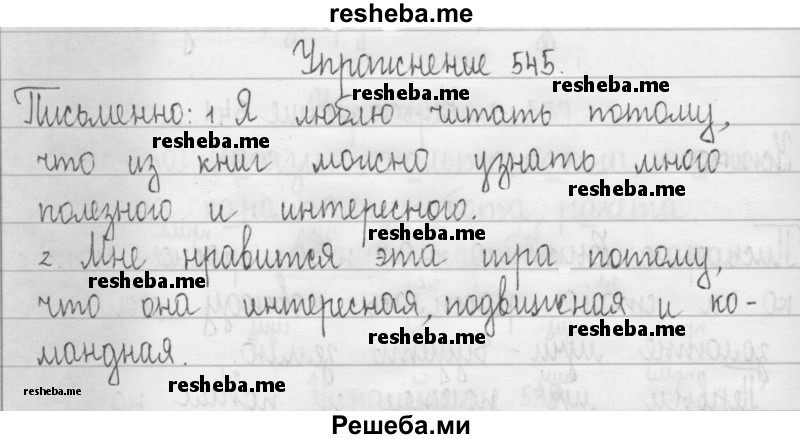 resheba.me
Упражнение 545.
resheba.me
Письменно: 1. Я люблю читать потому,
resheba.me
что из книг можно узнать много
resheba.me
полезного и интересного.
resheba.me
2. Мне нравится эта игра потому,
resheba.me
что она интересная, подвижная и ко-
resheba.me
мандная.
resheba.me
resheba.me
resheba.me
Решеба.ми